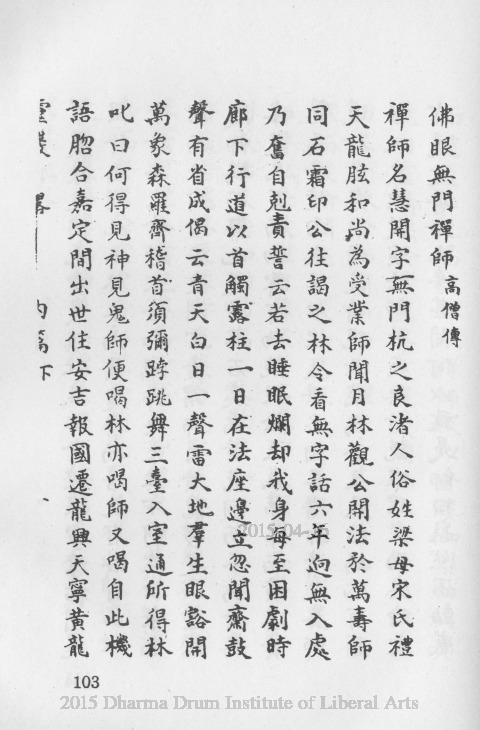 佛眼無門禪師高僧傳
禪師名慧開字無門杭之良渚人俗姓梁母宋氏禮
天龍肱和尚為受業師聞月林觀公開法於萬壽師
同石霜印公往謁之林令看無字話六年迥無入處
乃奮自剋責誓云若去睡眠爛却我身每至困劇時
廊下行道以首觸露柱一日在法座邊立忽聞齋鼓
聲有省成偈云青天白日一聲雷大地羣生眼豁開
萬象森羅齊稽首須彌𨁝跳舞三臺入室通所得林
叱曰何得見神見鬼師便喝林亦喝師又喝自此機
語脗合嘉定間出世住安吉報國遷龍興天寧黃龍
內篇下
103
2015-04-
2015 Dharma Drum Institute of Liberal Arts